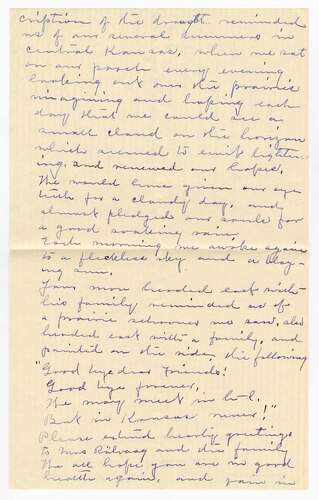 cription of the drought reminded
us of our several summers in
central Kansas, when we sat
on our porch every evening
looking out over the prairie
imagining and hoping each
day that we could see a
small cloud on the horizon
which seemed to emit lighten-
ing, and renewed our hopes.
We would have given our eye
teeth for a cloudy day, and
almost pledged our souls for
a good soaking rain.
Each morning we awoke again
to a fleckless sky and a blaz-
ing sun.
Your man headed east with
his family reminded us of
a prairie schooner we saw, also
headed east with a family, and
painted on the side, the following
"Good bye dear Friends!
Good bye forever.
We may meet in h-l.
But in Kansas never!"
Please extend hearty greetings
to Mrs Rölvaag and the family
We all hope you are in good
health again, and join in